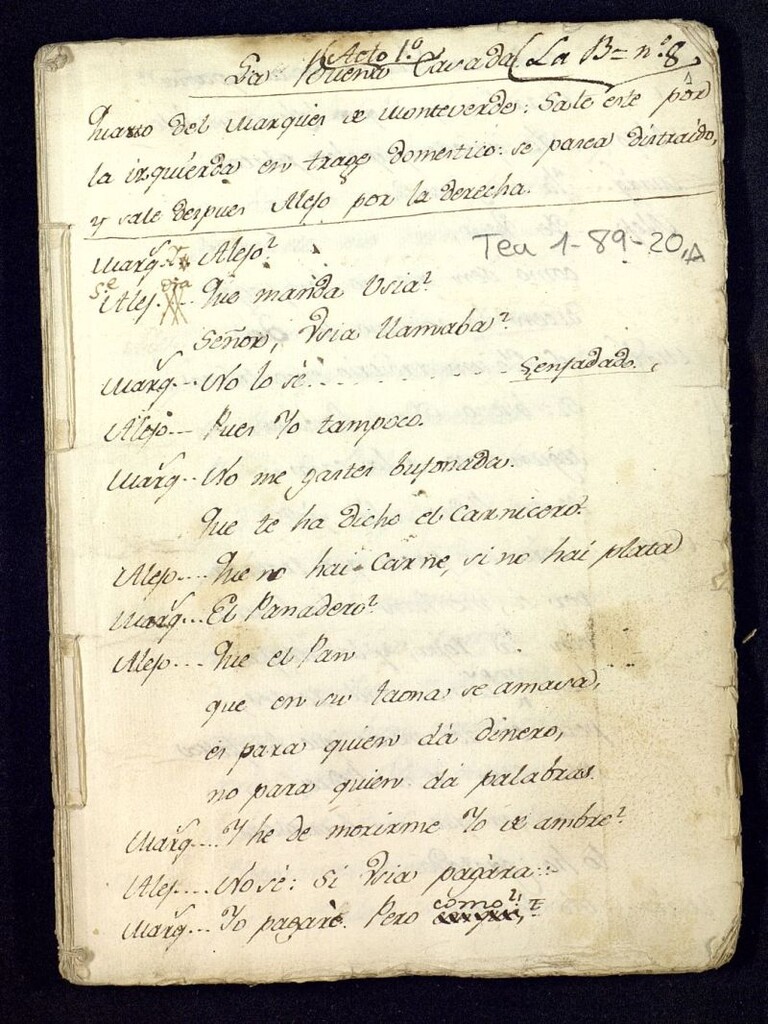 Acto 1.º
La Buena Casada La B= n.º 8
Quarto del Marques de Monteverde: Sale este por
la izquierda en trage domestico: se pasea distraido,
y sale despues Alejo por la derecha.
Teu 1-89-20, A
Marq.. Alejo?
Alej... Que manda Usia?
Señor, Usia llamaba?
Marq... No lo sé. . . . . . . . . Senfadado.
Alejo... Pues Yo tampoco.
Marq... No me gastes bufonadas.
Que te ha dicho el Carnicero?
Alejo.... Que no hai Carne, si no hai plata
Marq... El Panadero?
Alejo.... Que el Pan
que en su taona se amasa,
es para quien dá dinero,
no para quien dá palabras.
Marq.... Y he de morirme Yo de ambre?
Alej... No sé: Si Usia pagára...
Marq... Yo pagaré. Pero como?!